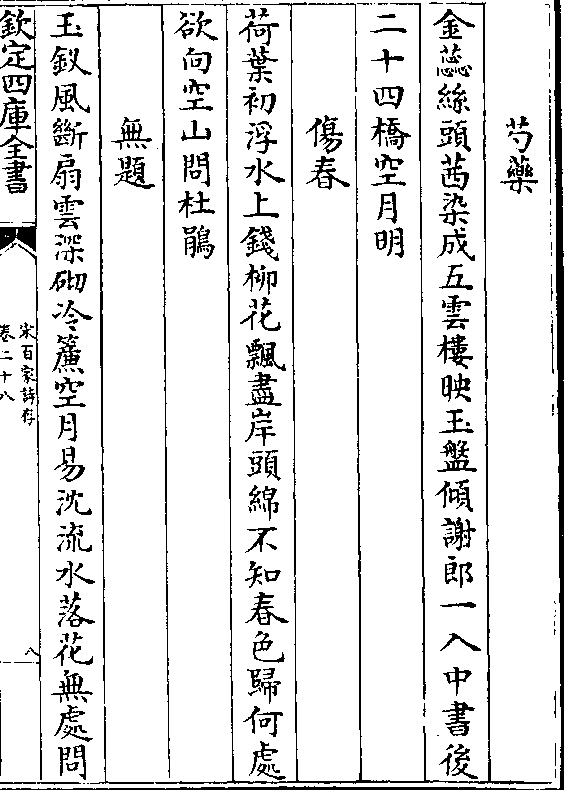 芍藥
金蕊絲頭茜染成五雲樓映玉盤傾謝郎一入中書後
二十四橋空月明
傷春
荷葉初浮水上錢柳花飄盡岸頭綿不知春色歸何處
欲向空山問杜鵑
無題
玉釵風斷扇雲深砌冷簾空月易沈流水落花無處問
欽定四庫全書
宋百家詩存
卷二十八
八